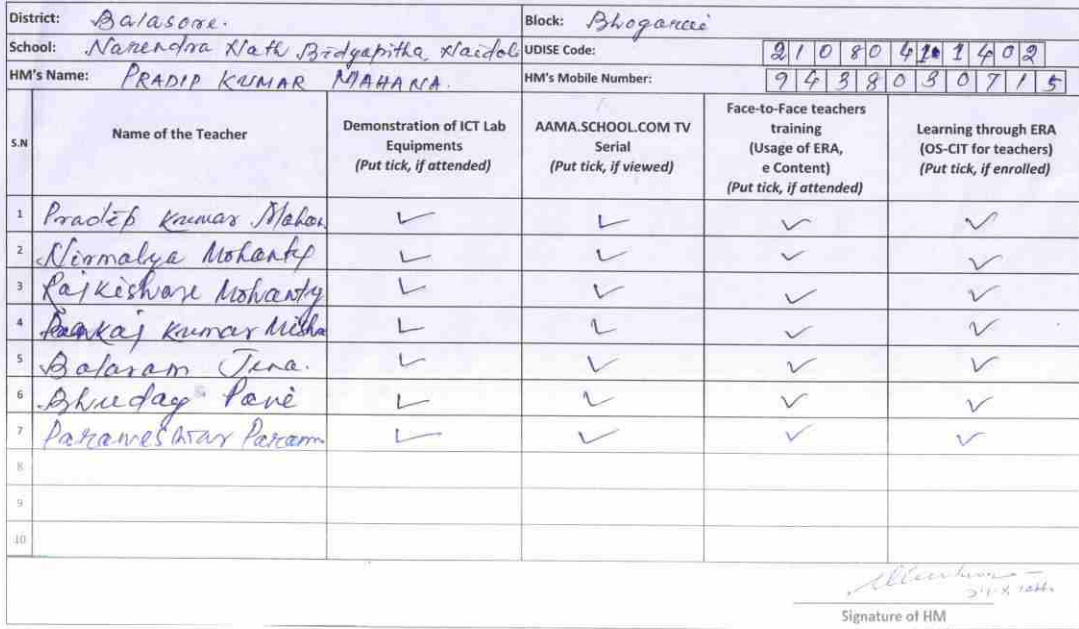 District: Balasore. Block: Bhogarai
School: Narendra Nath Bidyapitha, UDISE Code: 21080411402
HM's Name: PRADIP KUMAR MAHANA. HM's Mobile Number: 9438030715
S.N Name of the Teacher Demonstration of ICT Lab Equipments (Put tick, if attended) AAMA.SCHOOL.COM TV Serial (Put tick, if viewed) Face-to-Face teachers training (Usage of ERA, e Content) (Put tick, if attended) Learning through ERA (OS-CIT for teachers) (Put tick, if enrolled)
1 Pradip Kumar ✓ ✓ ✓ ✓
2 Nirmalya Mohanty ✓ ✓ ✓ ✓
3 Rajkishore Mohanty ✓ ✓ ✓ ✓
4 Pankaj Kumar Misha ✓ ✓ ✓ ✓
5 Balaram Jena. ✓ ✓ ✓ ✓
6 ✓ ✓ ✓ ✓
7 Parameshwar Param ✓ ✓ ✓ ✓
8
9
10
Signature of HM